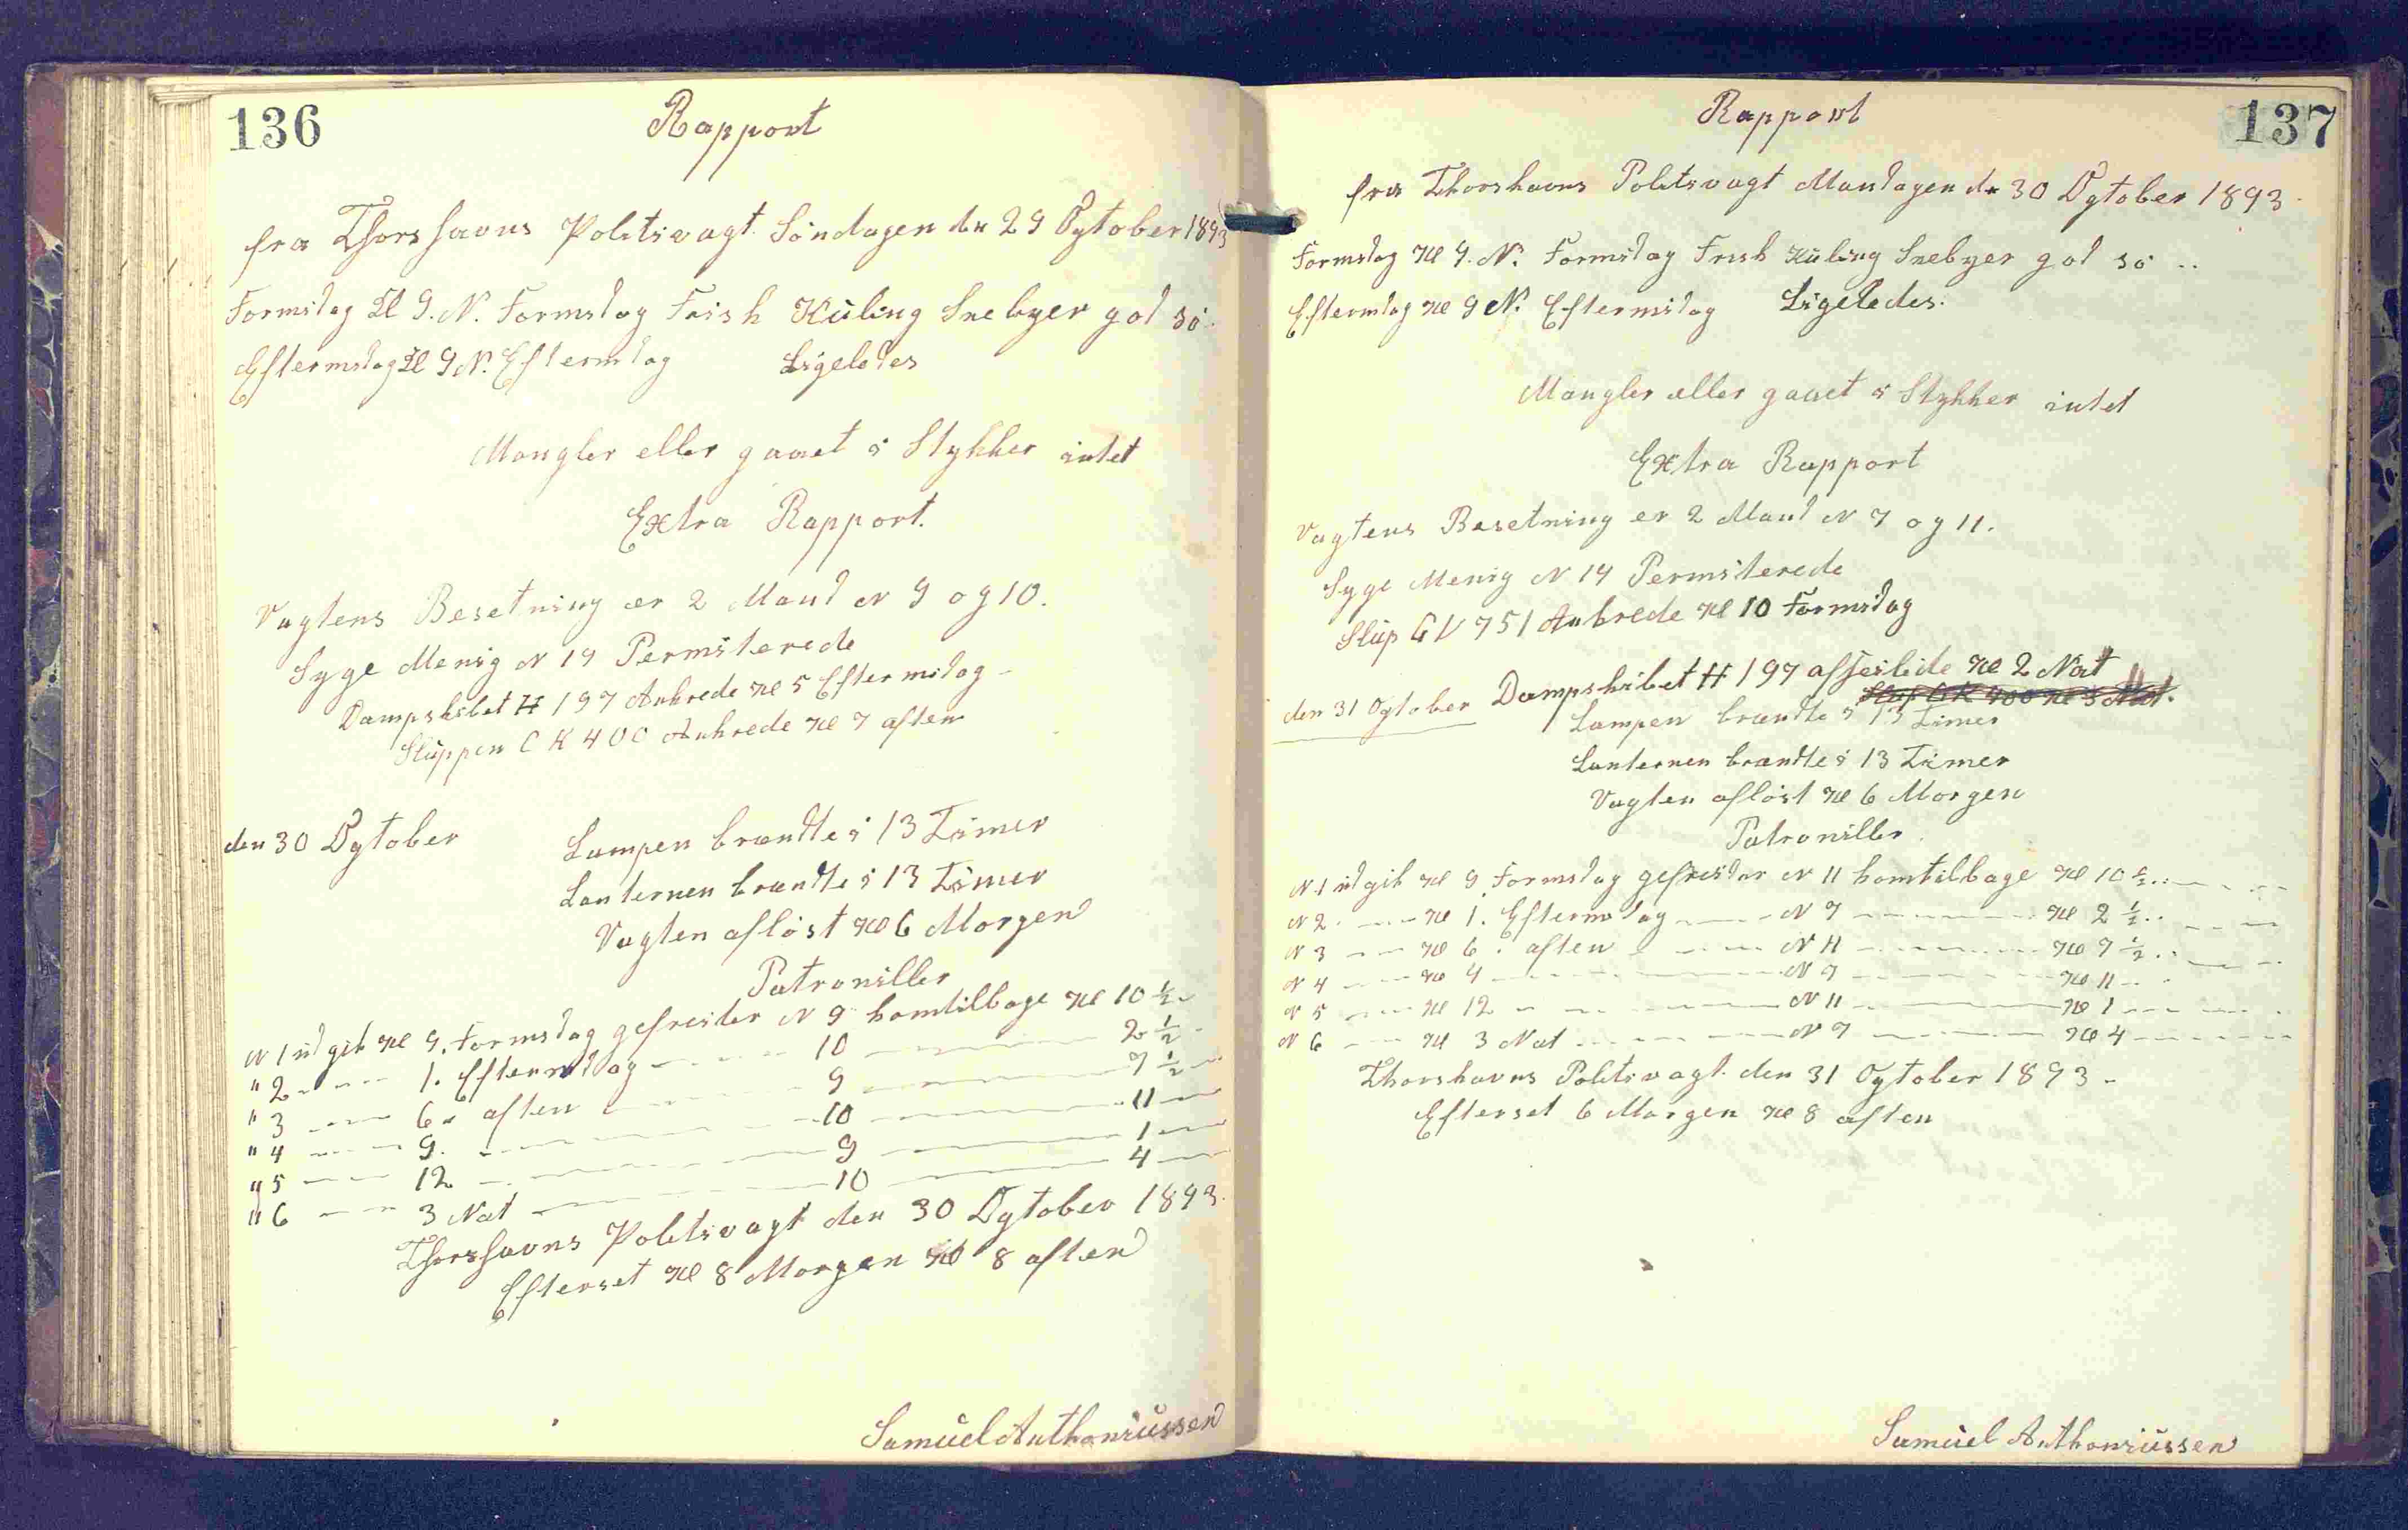 136
Rapport
fra Thorshavns Politivagt Søndagen den 29 Ogtober 1893
Formidag Kl 9. N. Formidag Frisk Küling Snebyer gol sö.
Eftermidag Kl 9 N. Eftermdag Ligeledes
Mangler eller gaaet i Stykker intet
Extra Rapport.
Vagtens Besetning er 2 Mand N 9 og 10.
Syge Menig N 14 Permiterede
Dampskibet H 197 Ankrede Kl 5 Eftermidag
Slüppen C K 400 Ankrede Kl 7 aften
den 30 Ogtober
Lampen brændte i 13 Timer
Lanternen brændte i 13 Timer
Vagten afløst Kl 6 Morgen
Patroniller
N 1 üdgik Kl 9. Formidag gefreider N 9 komtilbage Kl 10 1/2
" 2 1. Eftermidag 10 2 1/2
" 3 6 aften 9 7 1/2
" 4 9. 10 11
" 5 12 9 1
" 6 3 Nat 10 4
Thorshavns Politivagt den 30 Ogtober 1893.
Efterset Kl 8 Morgen Kl 8 aften
Samüel Anthoniüssen
137
Rapport
fra Thorshavns Politivagt Mandagen d. 30 Ogtober 1893.
Formidag Kl 9. N. Formidag Frisk Küling Snebyer gol sö ..
Eftermdag Kl 9 N. Eftermidag Ligeledes.
Mangler eller gaaet i Stykker intet
Extra Rapport
Vagtens Besetning er 2 Mand N 7 og 11.
Syge Menig N 14 Permiterede
Slüp G V 751 Ankrede Kl 10 Formidag
den 31 Ogtober Dampskibet H 197 afseilede Kl 2 Nat
Slüp C K 400 Kl 3 Nat.
Lampen brændte i 13 Timer
Lanternen brændte i 13 Timer
Vagten afløst Kl 6 Morgen
Patroniller
N 1 üdgik Kl 9. Formidag gefreider N 11 komtilbage Kl 10 1/2
N 2 Kl 1. Eftermidag N 7 Kl 2 1/2
N 3 Kl 6. aften N 11 Kl 7 1/2
N 4 Kl 9 N 7 Kl 11
N 5 Kl 12 N 11 Kl 1
N 6 Kl 3 Nat N 7 Kl 4
Thorshavns Politivagt. den 31 Ogtober 1893
Efterset 6 Morgen Kl 8 aften
Samüel Anthoniüssen